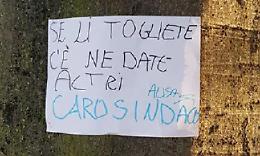 SE LI TOGLIETE
C'È NE DATE
ALTRI
CARO SINDACO